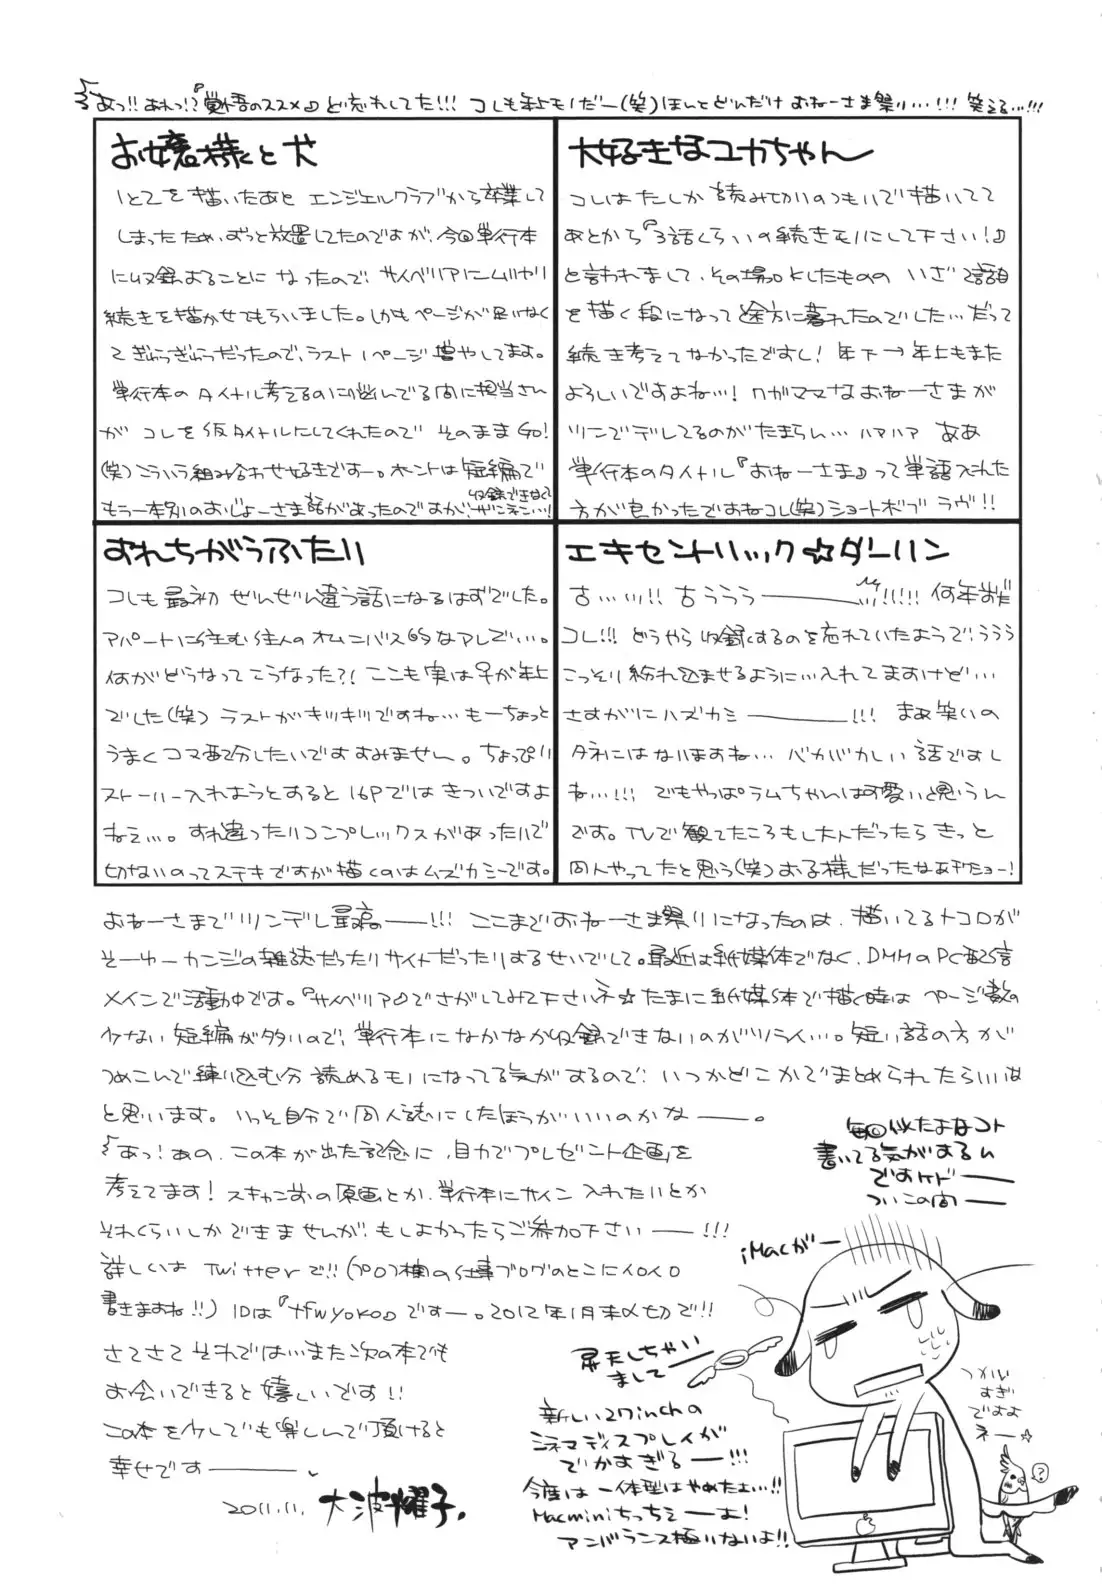 あっ!!あれっ!?『覚悟のススメ』ど忘れしてた!!!コレも年上モノだー(笑)ほんとどんだけおねーさま祭り…!!!笑える…!!!
お嬢様と犬
1と2を描いたあとエンジェルクラブから卒業して
しまったため、ずっと放置してたのですが、今回単行本
に収録することになったので、サイベリアにムリヤリ
続きを描かせてもらいました。しかもページが足りなく
てぎゅうぎゅうだったので、ラスト1ページ増やしてます。
単行本のタイトル考えるのに悩んでる間に担当さん
がコレを仮タイトルにしてくれたのでそのままGO!
(笑)こういう組み合わせ好きですー。ホントは短編で
もう一本別のおじょーさま話があったのですが、収録できなくてザンネン…!
大好きなユカちゃん
コレはたしか読み切りのつもりで描いてて
あとから『3話くらいの続きモノにして下さい!』
と言われまして、その場OKしたものの いざ2話目
を描く段になって途方に暮れたのでした…だって
続き考えてなかったですし!年下→年上もまた
よろしいですよね…!ワガママなおねーさまが
ツンでデレてるのがたまらん…ハァハァ ああ
単行本のタイトル『おねーさま』って単語入れた
方が良かったですかねコレ(笑)ショートボブ ラヴ!!
すれちがうふたり
コレも最初ぜんぜん違う話になるはずでした。
アパートに住む住人のオムニバス的なアレで…。
何がどうなってこうなった?!ここも実は♀が年上
でした(笑)ラストがキツキツですね…もーちょっと
うまくコマ配分したいですすみません。ちょっぴり
ストーリー入れようとすると16Pではきついですよ
ねぇ…。すれ違ったりコンプレックスがあったりで
切ないのってステキですが描くのはムズカシーです。
エキセントリック☆ダーリン
古…ッ!!古ううう―――ッ!!!!!何年前だ
コレ!!!どうやら収録するのを忘れていたようで、ううう
こっそり紛れ込ませるように…入れてますけど…
さすがにハズカシ―――!!!まあ笑いの
タネにはなりますね…バカバカしい話ですし
ね…!!!でもやっぱラムちゃんは可愛いと思うん
です。TVで観てたころもし大人だったらきっと
同人やってたと思う(笑)お子様だったなあチクショー!
おねーさまでツンデレ最高――!!!ここまでおねーさま祭りになったのは、描いてるトコロが
そーゆーカンジの雑誌だったりサイトだったりするせいでして。最近は紙媒体でなく、DMMのPC配信
メインで活動中です。『サイベリア』でさがしてみて下さいネ☆たまに紙媒体で描く時はページ数の
少ない短編が多いので、単行本になかなか収録できないのがツライ…。短い話の方が
つめこんで練り込む分読めるモノになってる気がするので、いつかどこかでまとめられたらいいな
と思います。いっそ自分で同人誌にしたほうがいいのかな――。
あっ!あの、この本が出た記念に、自力でプレゼント企画を
考えてます!スキャン前の原画とか、単行本にサイン入れたいとか
それくらいしかできませんが、もしよかったらご参加下さい――!!!
詳しくは Twitterで!!(プロフ欄の仕事ブログのとこにイロイロ
書きますね!!)IDは『tfwyoko』ですー。2012年1月末〆切で!!
さてさてそれでは…また次の本でも
お会いできると嬉しいです!!
この本を少しでも楽しんで頂けると
幸せです―――。
2011.11. 大波耀子.
毎回似たよなコト
書いてる気がするん
ですケドー
ついこの間―
iMacがー
昇天しちゃい
まして
新しい27inchの
シネマディスプレイが
でかすぎるー!!!
今度は一体型はやめたよ…!!
Macminiちっちぇーよ!
アンバランス極りないよ!!
つめいすぎ
ですよ
ネー☆
?